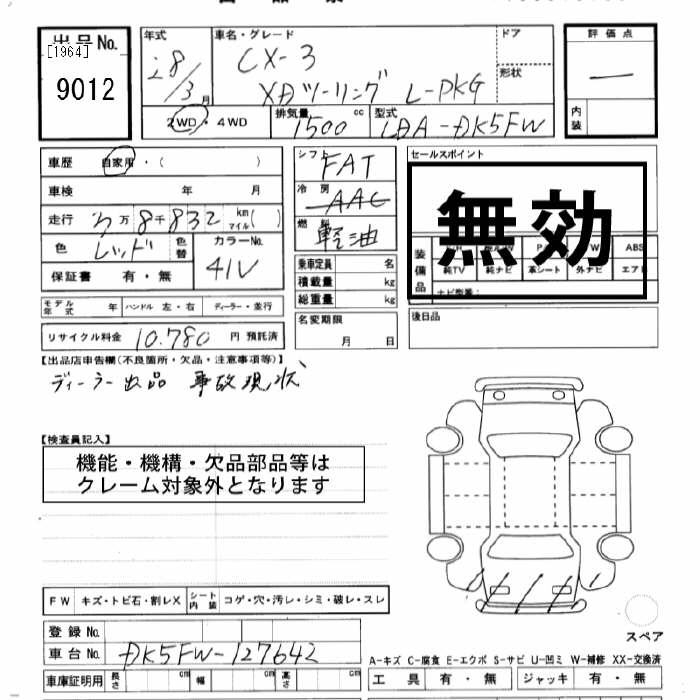 出品No.
[1964]
9012
年式
28/3月
車名・グレード
CX-3
XDツーリング L-PKG
ドア
形状
評価点
―
内装
2WD・4WD
排気量 1500 cc
型式 LDA-DK5FW
車歴 自家用・( )
車検 年 月
走行 3万8千832 km マイル( )
色 レッド 色替
カラーNo. 41V
保証書 有・無
モデル年式 年 ハンドル 左・右 ディーラー・並行
リサイクル料金 10.780 円 預託済
シフト FAT
冷房 AAC
燃料 軽油
乗車定員 名
積載量 kg
総重量 kg
名変期限
月 日
セールスポイント
無効
装備品
ABS
純TV 純ナビ 革シート 外ナビ エアB
ナビ型番:
後日品
【出品店申告欄(不良箇所・欠品・注意事項等)】
ディーラー出品 事故現状
【検査員記入】
機能・機構・欠品部品等は
クレーム対象外となります
FW キズ・トビ石・割レX シート内装 コゲ・穴・汚レ・シミ・破レ・スレ
登録No.
車台No. DK5FW-127642
車庫証明用 長さ cm 幅 cm 高さ cm
スペア
A-キズ C-腐食 E-エクボ S-サビ U-凹ミ W-補修 XX-交換済
工具 有・無 ジャッキ 有・無